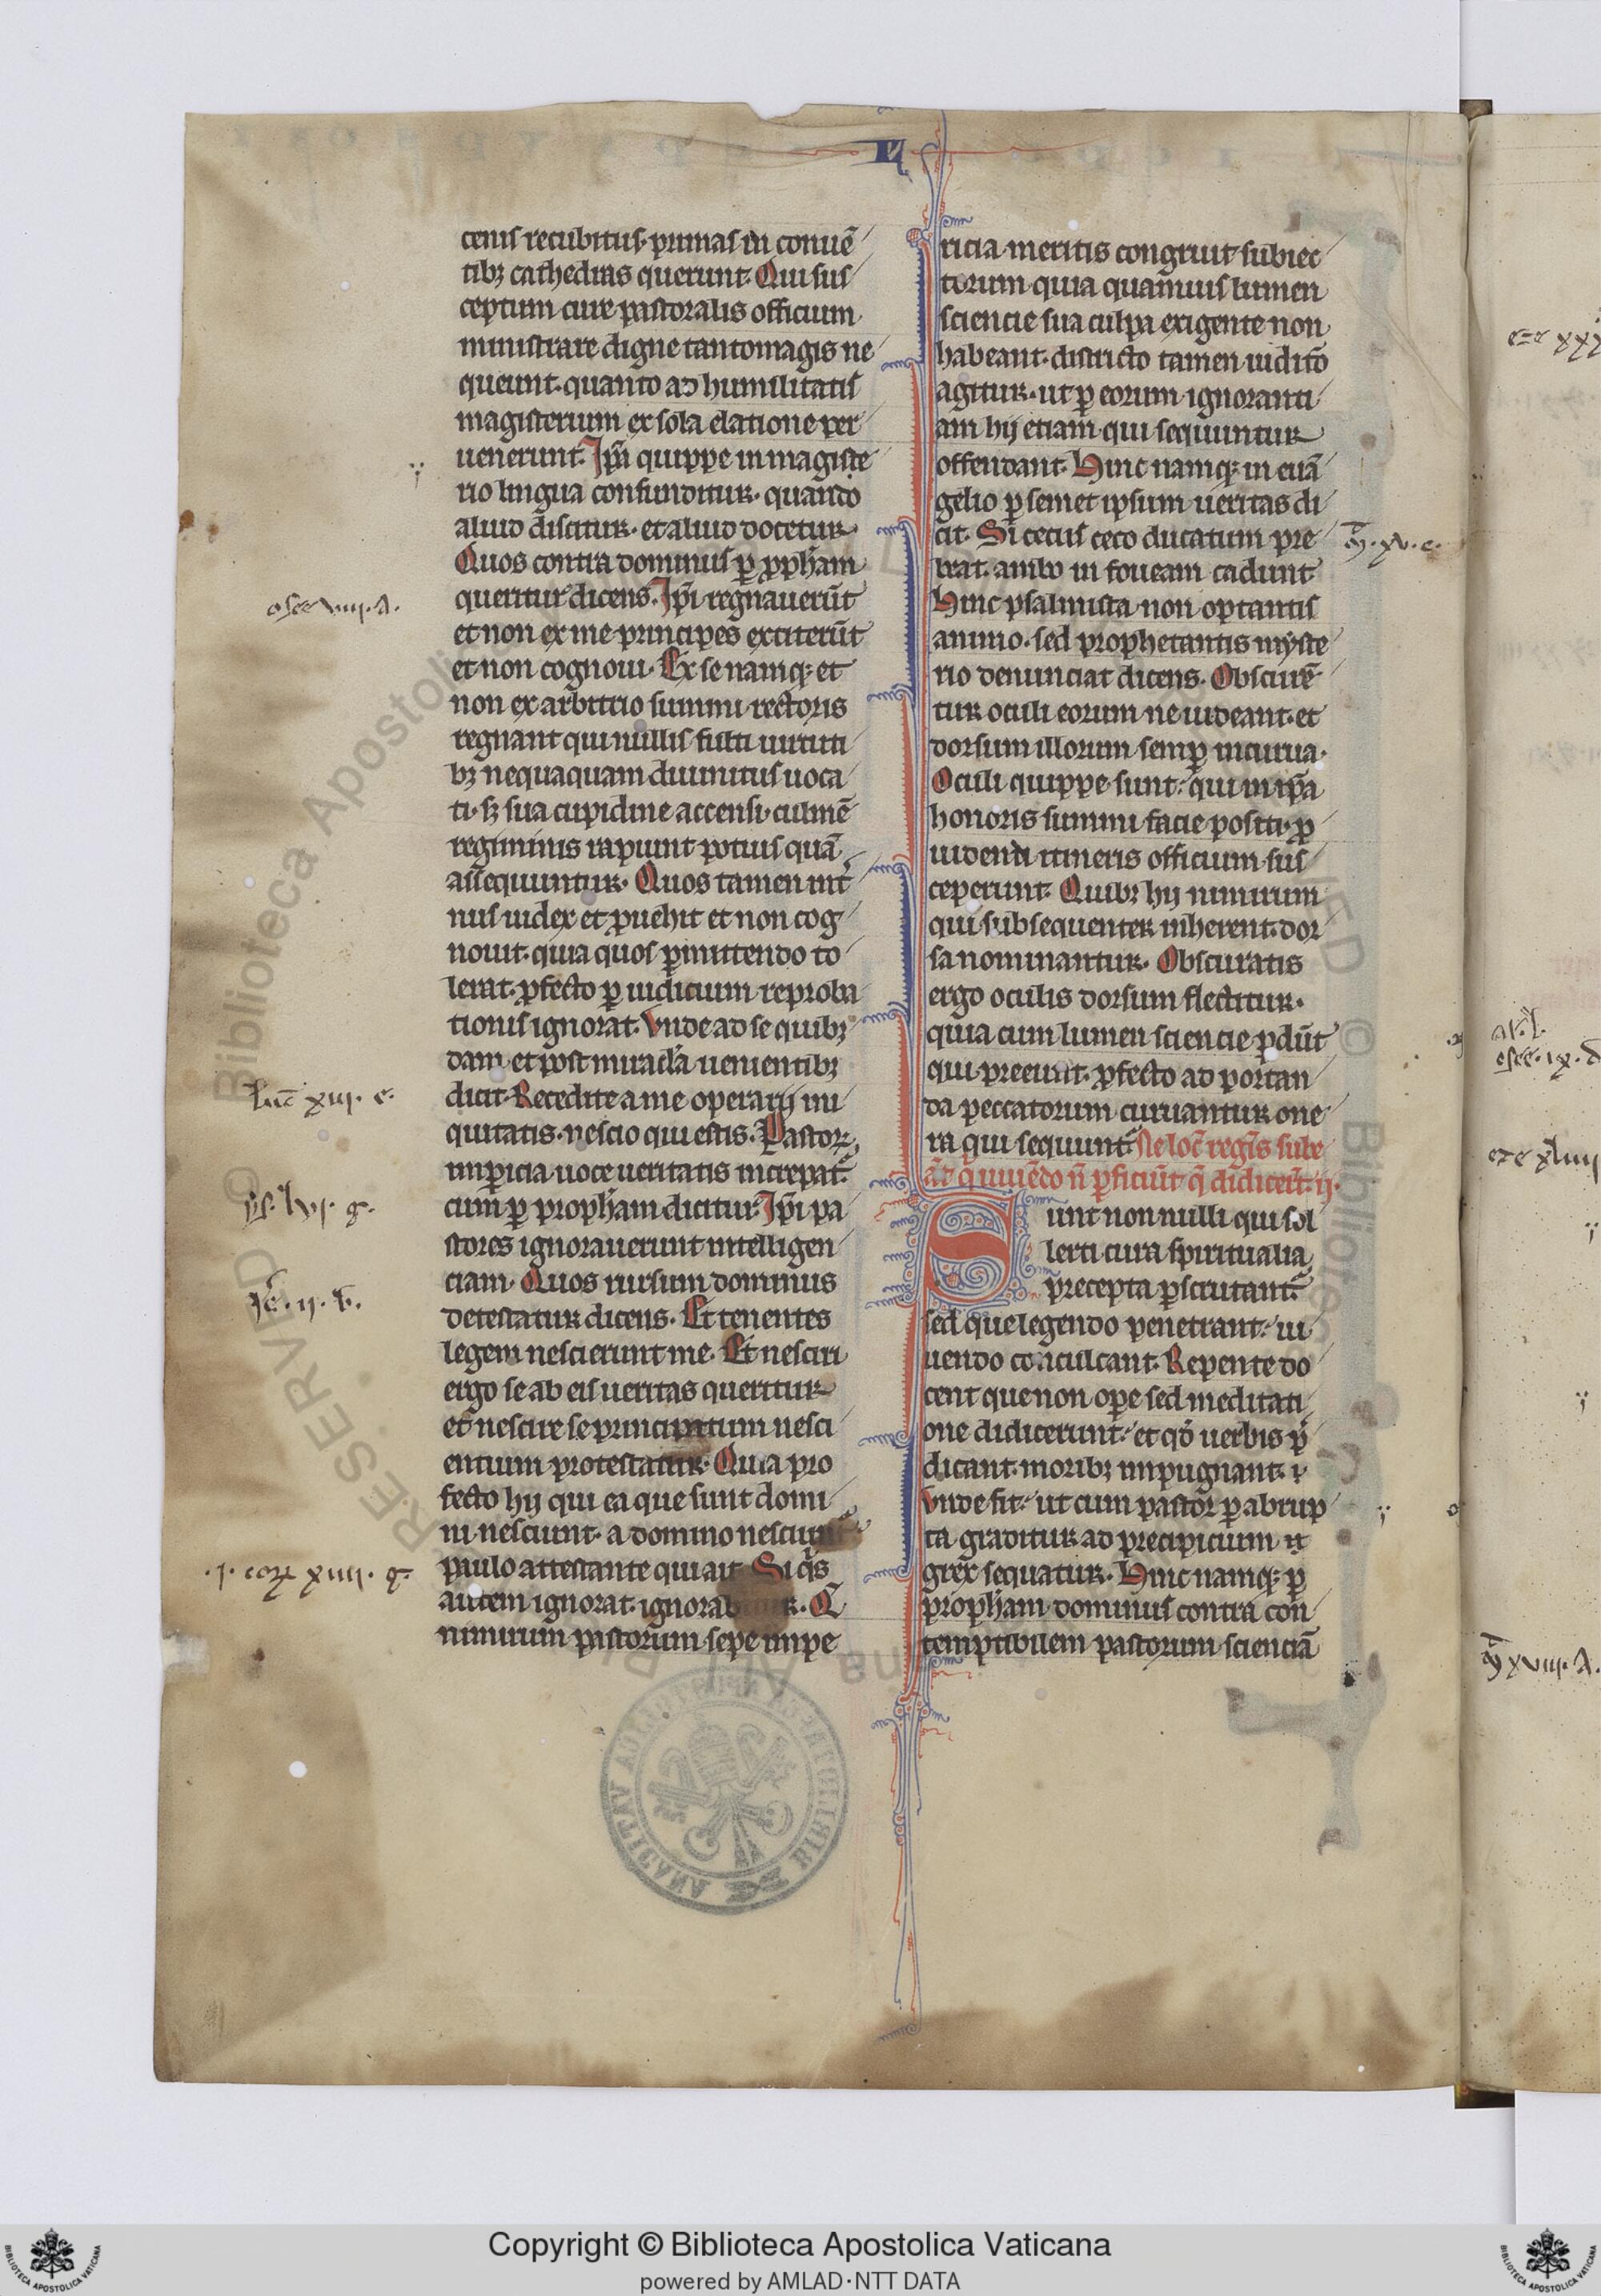 cenis recubitus. primas in conuē
tibꝫ cathedras querunt. Qui sus
ceptum cure pastoralis officium
ministrare digne tantomagis ne
queunt. quanto ad humilitatis
magisterium ex sola elatione per
uenerunt. Ip̄a quippe in magiste
rio lingua confunditur. quando
aliud discitur. et aliud docetur.
Quos contra dominus ꝑ ꝓph̄am
queritur dicens. Ip̄i regnauerūt
et non ex me. principes extiterūt
et non cognoui. Ex se namqꝫ et
non ex arbitrio summi rectoris
regnant qui nullis fulti uirtuti
bꝫ nequaquam diuinitus uoca
ti. sꝫ sua cupidine accensi. culmē
regiminis rapiunt potius quā
assequuntur. Quos tamen int̉
nus iudex et ꝓuehit et non cog
nouit. quia quos ꝑmittendo to
lerat. ꝓfecto ꝑ iudicium reproba
tionis ignorat. Vnde ad se quibꝫ
dam et post miracl̄a uenientibꝫ
dicit. Recedite a me operarij ini
quitatis. nescio qui estis. Pastorꝝ
imꝑicia uoce ueritatis increpat᷑.
cum ꝑ proph̄am dicitur. Ip̄i pa
stores ignorauerunt intelligen
ciam. Quos rursum dominus
detestatur dicens. Et tenentes
legem nescierunt me. Et nesciri
ergo se ab eis ueritas queritur
et nescire se principatum nesci
entium protestatur. Quia pro
fecto hij qui ea que sunt domi
ni nesciunt. a domino nesciunt᷑.
paulo attestante qui ait. Si qͥs
autem ignorat. ignorabitur. Q
nimirum pastorum sepe impe
ricia meritis congruit subiec
torum. quia quamuis lumen
sciencie sua culpa exigente non
habeant. districto tamen iudic̄o
agitur. ut ꝑ eorum ignoranti
am hij etiam qui sequuntur
offendant. Hinc namqꝫ in euā
gelio ꝑ semet ipsum ueritas di
cit. Si cecus ceco ducatum pre
beat. ambo in foueam cadunt.
Hinc psalmista non optantis
animo. sed prophetantis myste
rio denunciat dicens. Obscurē
tur oculi eorum ne uideant. et
dorsum illorum semꝑ incurua.
Oculi quippe sunt. qui in ip̄a
honoris summi facie positi. ꝓ
uidendi itineris officium sus
ceperunt. Quibꝫ hij nimirum
qui subsequenter inherent. dor
sa nominantur. Obscuratis
ergo oculis dorsum flectitur.
quia cum lumen sciencie ꝑdūt
qui preeunt. ꝓfecto ad portan
da peccatorum curuantur one
ra qui sequunt᷑. Ne loc̄ regīs sube
āt q̇ uiuēdo n̄ ꝑficiūt q̄ didicer̄t. ij.
Sunt non nulli qui sol
lerti cura spiritualia
precepta ꝑscrutant᷑.
sed que legendo penetrant. ui
uendo conculcant. Repente do
cent que non oꝑe sed meditati
one didicerunt. et qd̓ uerbis p̄
dicant. moribꝫ impugnant.
Vnde fit. ut cum pastor ꝑ abrup
ta graditur ad precipicium
grex sequatur. Hinc namqꝫ ꝑ
proph̄am dominus contra con
temptibilem pastorum scienciā
osee viij. a.
luc̄ xiij. e.
ys. lvj. g.
Ie᷑. ij. b.
.i. corꝝ xiiij. g.
xv. c.
xviij. a.
Copyright © Biblioteca Apostolica Vaticana
powered by AMLAD·NTT DATA